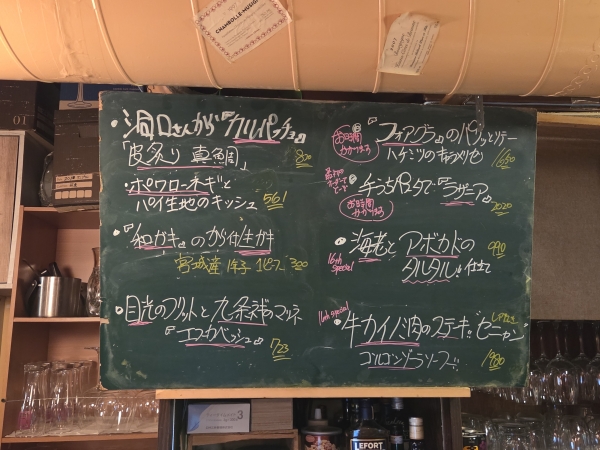 CHAMBOLLE-MUSIGNY
・洞口さんが『カルパッチョ』
「皮炙り 真鯛」 800
・ポワローネギと
パイ生地のキッシュ 561
・『和がき』のから付生がき
宮城産 1ピース 300
・目光のフリットと九条ネギのマリネ
『エスカベッシュ』 723
・『フォアグラ』のパリッとソテー
ハチミツのキャラメリゼ 1680
お時間
かかります
・手打ちパスタで『ラザニア』
2020
お時間
かかる
・海老とアボカドの 990
タルタル仕立て
16th special
16th special
・牛カイノミ肉のステーキ "セニャン"
ゴルゴンゾーラソース 1980
3
LEFORT